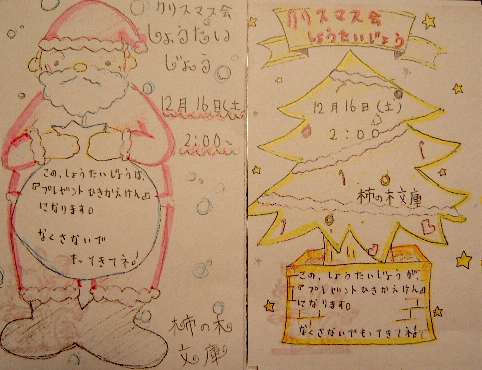 クリスマス会
しょうたい
じょう
12月16日(土)
2:00~
この、しょうたいじょうは、
『プレゼントひきかえけん』
になります。
なくさないで
もってきてネ。
柿の木
文庫
クリスマス会
しょうたいじょう
12月16日(土)
2:00~
柿の木文庫
この、しょうたいじょうが、
『プレゼントひきかえけん』
になります。
なくさないでもってきてネ!